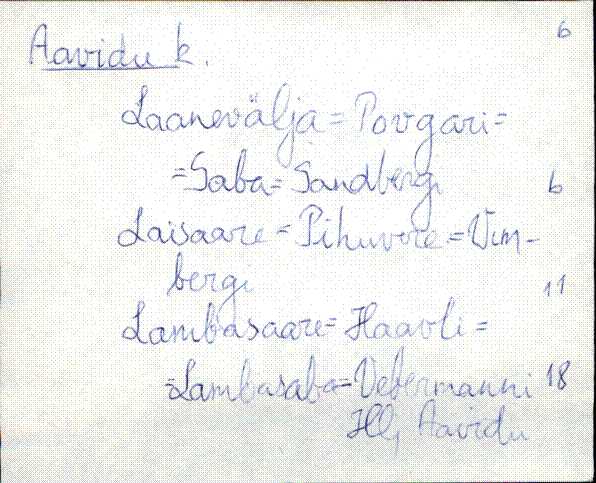 Aavidu k. 6
Laanevälja = Povgari =
= Saba = Sandbergi 6
Laisaare = Pihuvere = Vim-
bergi 11
Lambasaare = Haavli =
= Lambasaba = Vebermanni 18
Aavidu